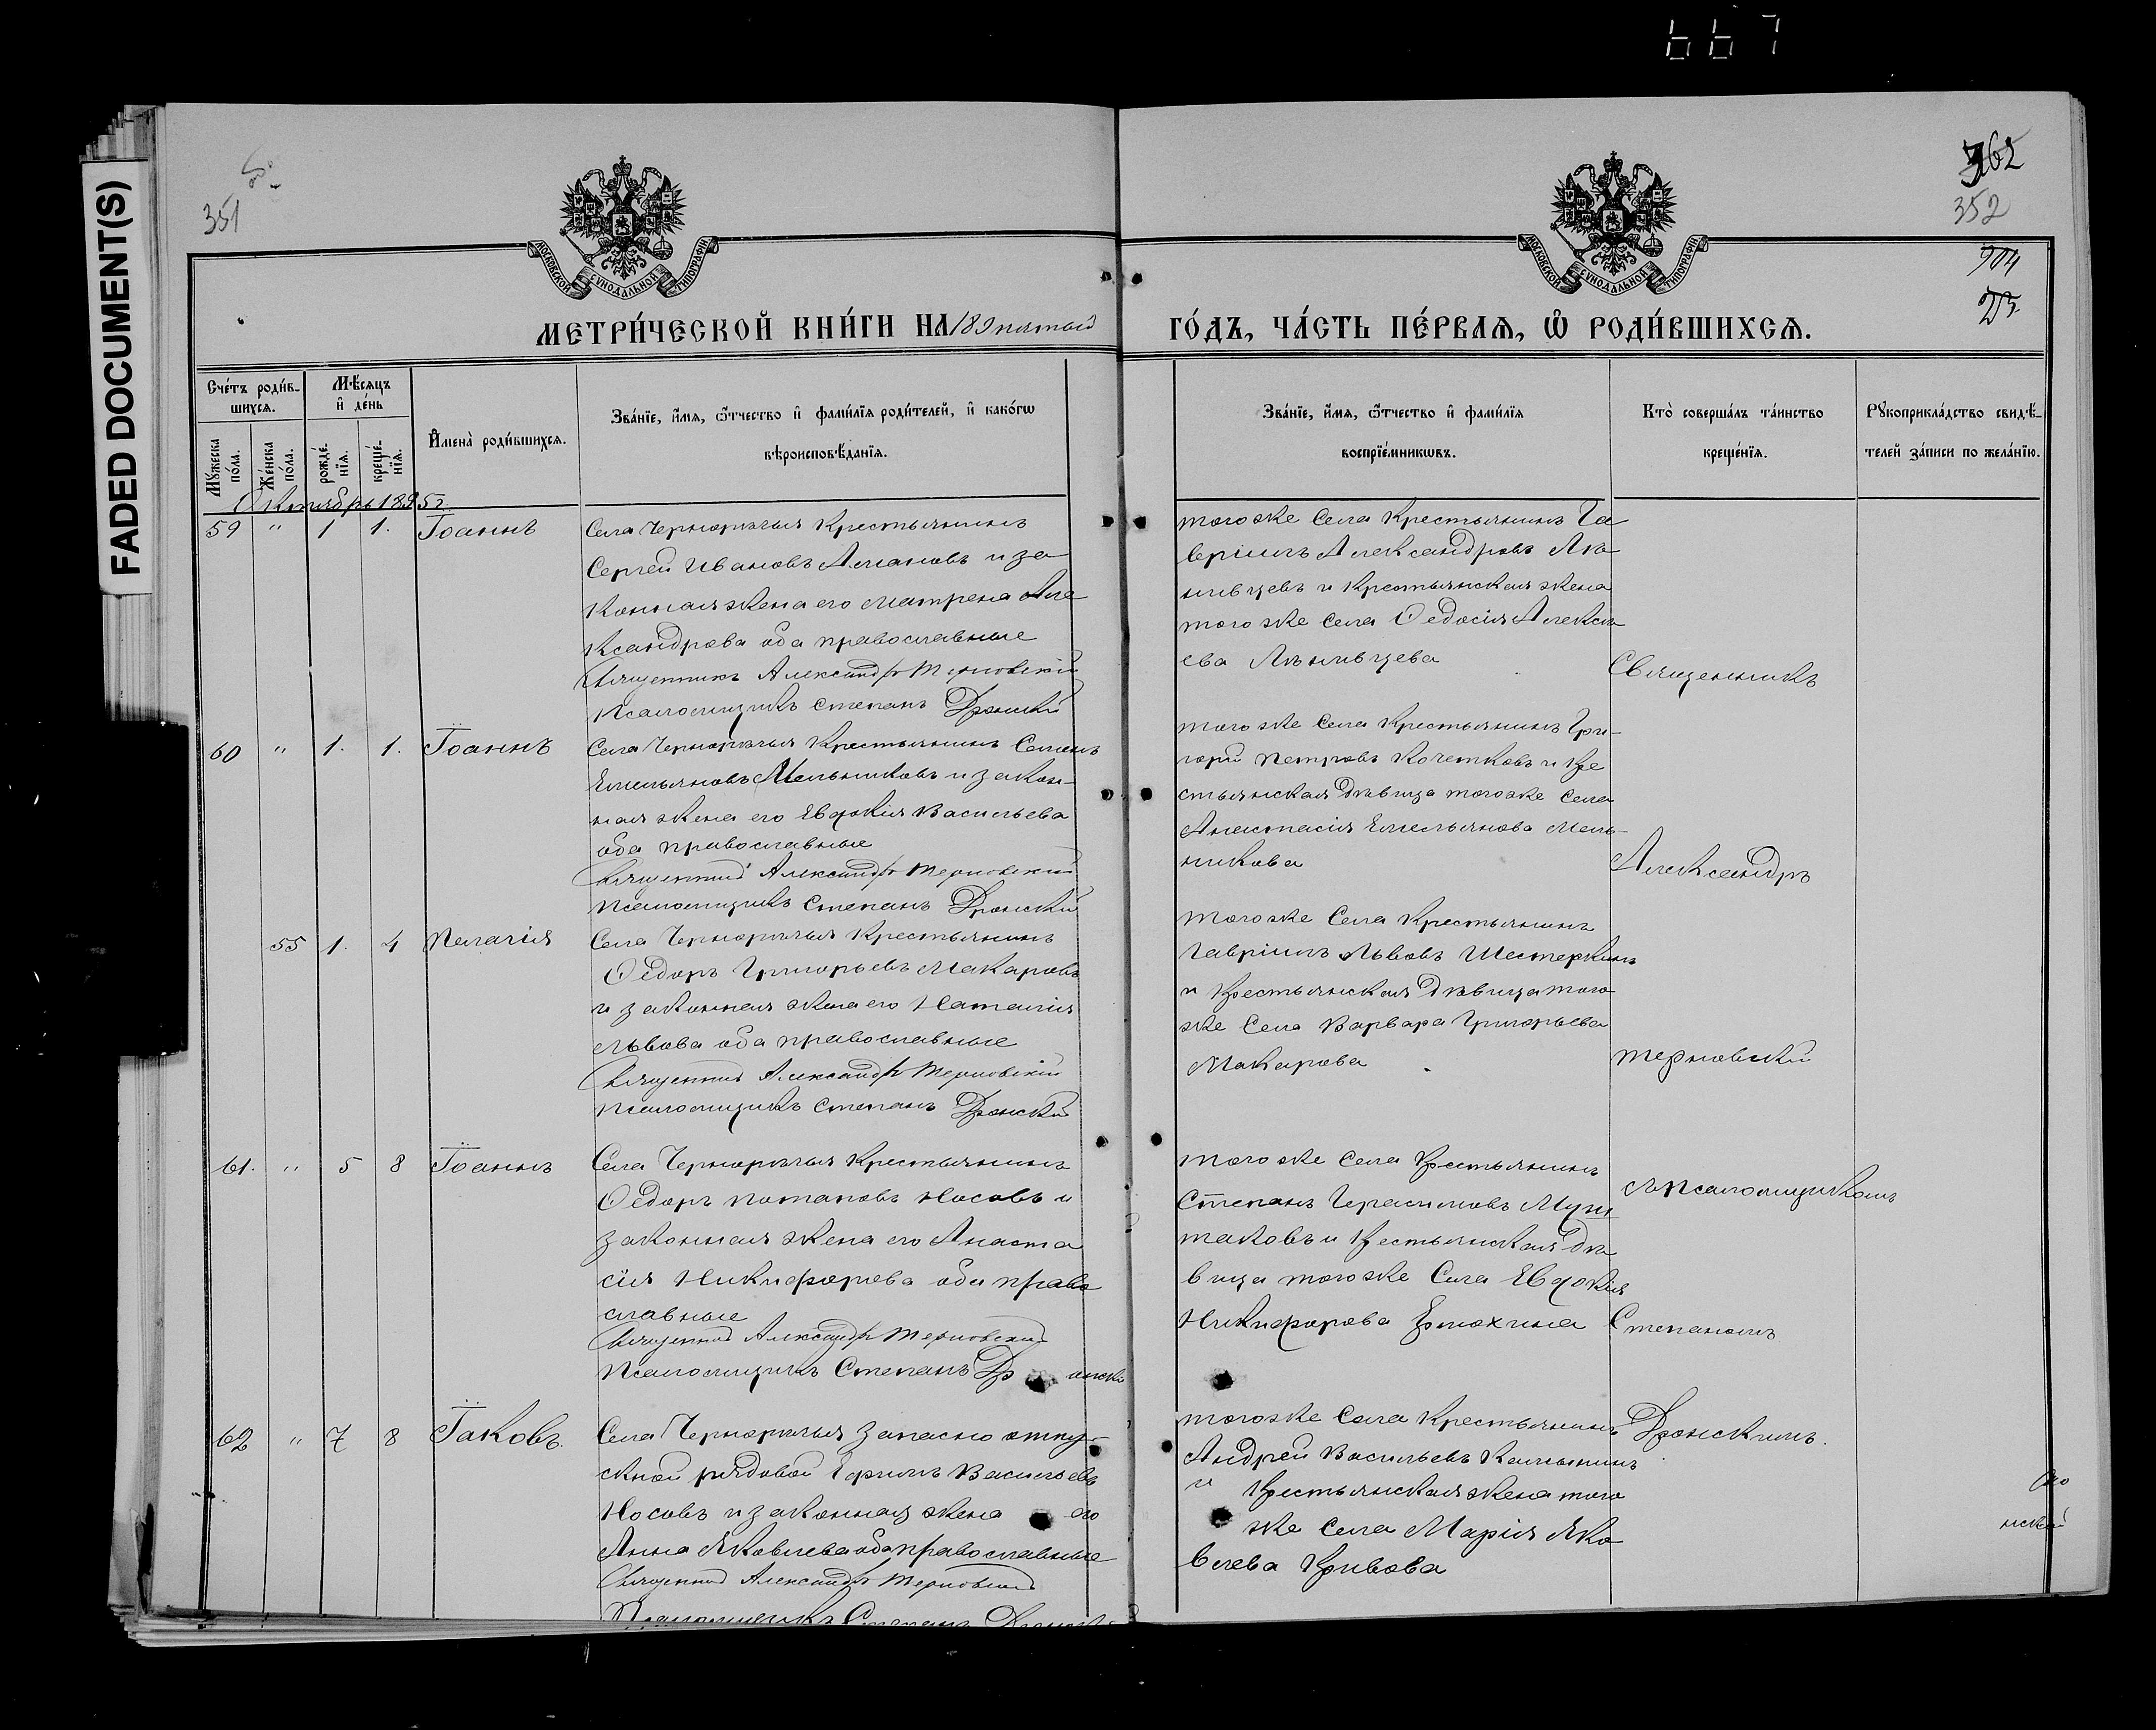 667
FADED DOCUMENT(S)
351
362
352
904
МОСКОВСКОЙ СУНОДАЛЬНОЙ ТИПОГРАФІИ
МОСКОВСКОЙ СУНОДАЛЬНОЙ ТИПОГРАФІИ
МЕТРИ́ЧЕСКОЙ КНИ́ГИ НА 189пятый
ГО́ДЪ, ЧА́СТЬ ПЕ́РВАѦ, Ѡ҆ РОДИ́ВШИХСѦ.
Сче́тъ роди́в-
шихсѧ.
Мꙋ́жеска по́ла.
Же́нска по́ла.
Мѣ́сѧцъ и҆ де́нь
рожде́-нїѧ.
креще́-нїѧ.
И҆мена̀ роди́вшихсѧ.
Зва́нїе, и҆́мѧ, ѻ҆́тчество и҆ фами́лїѧ роди́телей, и҆ како́гѡ
вѣроисповѣ́данїѧ.
Зва́нїе, и҆́мѧ, ѻ҆́тчество и҆ фами́лїѧ
воспрїе́мникѡвъ.
Кто̀ соверша́лъ та́инство
креще́нїѧ.
Рꙋкоприкла́дство свидѣ́-
телей за́писи по жела́нїю.
Октябрь 1895 г.
59 " 1 1. Іоаннъ
Села Чернорѣчья Крестьянинъ
Сергей Ивановъ Аmановъ и за
конная жена его Матрена Але
ксандрова оба православные
Священникъ Александръ Терновскій
Псаломщикъ Степанъ Дронский
тогоже Села Крестьянинъ Га
вріилъ Александровъ Лѣ
нивцевъ и Крестьянская жена
того же Села Ѳедосія Алексѣ
ева Лѣнивцева
60 " 1. 1. Іоаннъ
Села Чернорѣчья Крестьянинъ Семенъ
Емельяновъ Мельниковъ и закон-
ная жена его Евдокія Васильева
оба православные
Священникъ Александръ Терновский
Псаломщикъ Степанъ Дронский
того же Села Крестьянинъ Гри-
горій Петровъ Кочетковъ и Кре
стьянская дѣвица тогоже Села
Анастасія Емельянова Мель-
никова
55 1. 4 Пелагія
Села Чернорѣчья Крестьянинъ
Ѳедоръ Григорьевъ Макаровъ
и законная жена его Наталія
Львова оба православные
Священникъ Александръ Терновскій
Псаломщикъ Степанъ Дронский
Того же Села Крестьянинъ
Гавріилъ Львовъ Шестеркинъ
и Крестьянская дѣвица того
же Села Варвара Григорьева
Макарова
61. " 5 8 Іоаннъ
Села Чернорѣчья Крестьянинъ
Ѳедоръ Потаповъ Носовъ и
законная жена его Анаста
сія Никифорова оба право
славные
Священникъ Александръ Терновский
Псаломщикъ Степанъ Др онски
того же Села Крестьянинъ
Степанъ Герасимовъ Муш
таковъ и Крестьянская дѣ
вица тогоже Села Евдокія
Никифорова Ермохина
62 " 7 8 Іаковъ.
Села Чернорѣчья запасно отпу-
скной рядовой Ефимъ Васильевъ
Носовъ и законная жена его
Анна Яковлева оба православные
Священникъ Александръ Терновский
Псаломщикъ Степанъ Дронский
тогоже Села Крестьянинъ
Андрей Васильевъ Калмынинъ
и Крестьянская жена того
же Села Марія Яко
влева Кривова
Священникъ
Александръ
Терновский
съ Псаломщикомъ
Степаномъ
Дронскимъ.